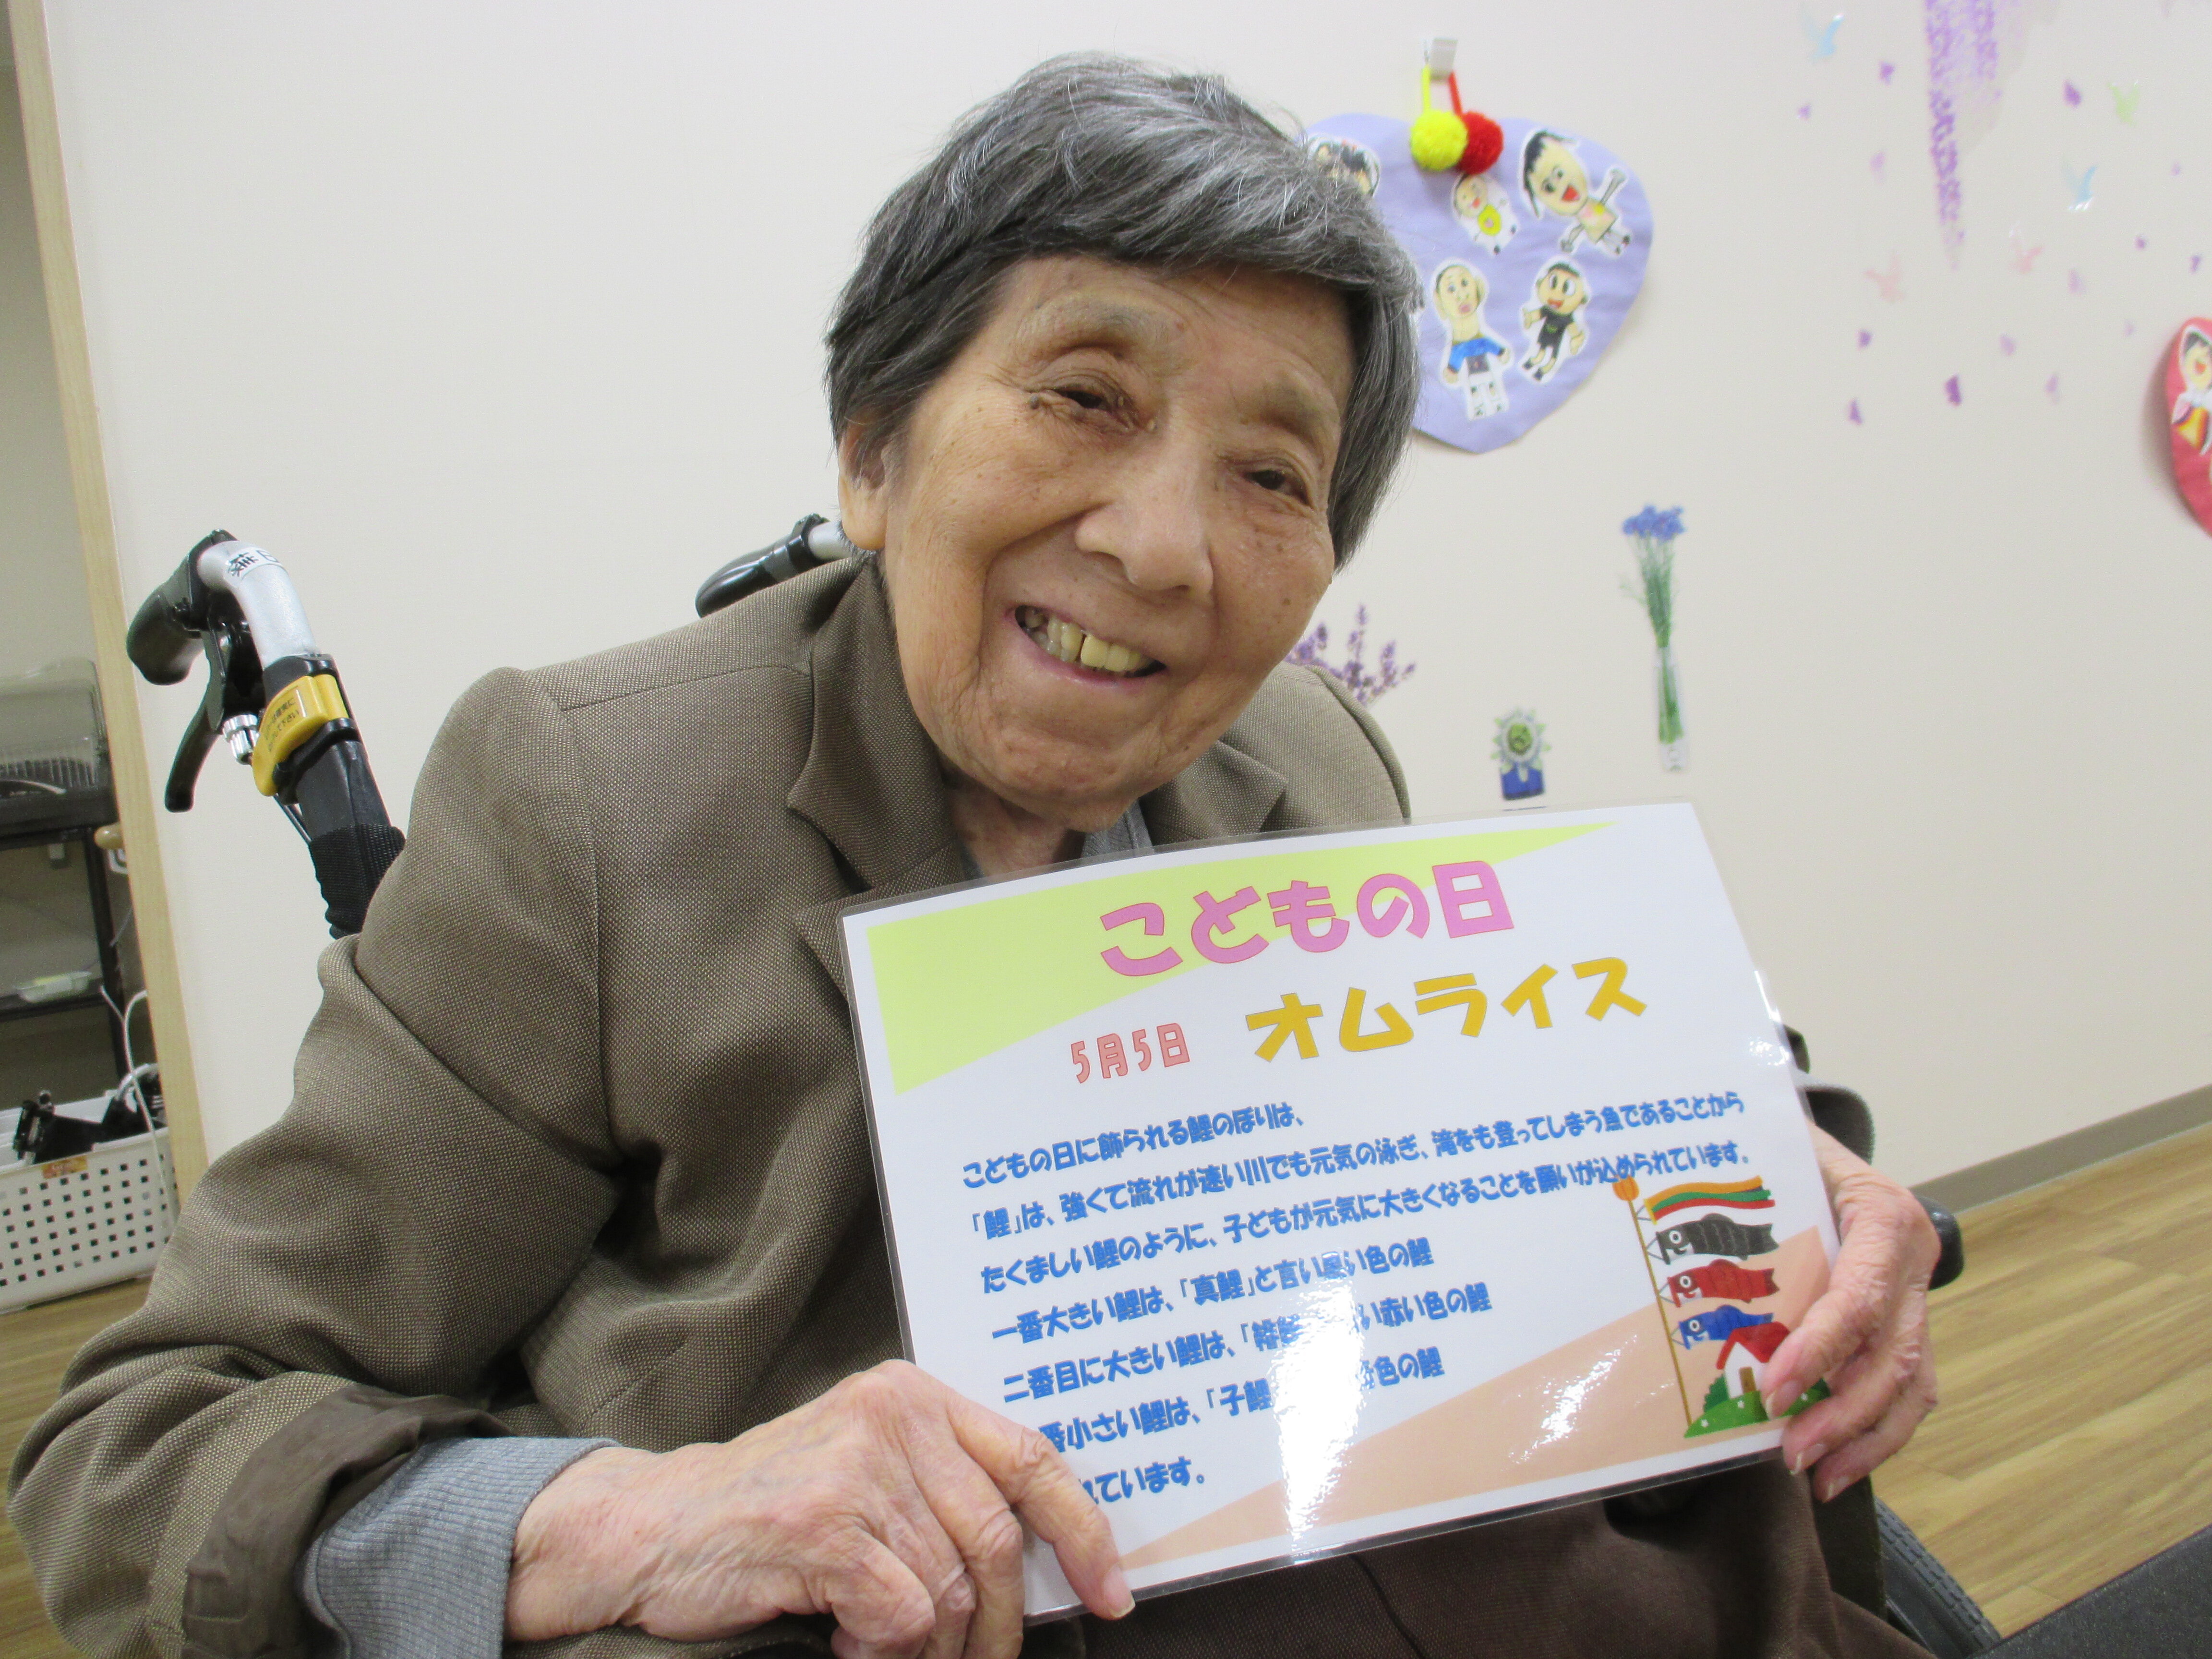 こどもの日
5月5日 オムライス
こどもの日に飾られる鯉のぼりは、
「鯉」は、強くて流れが速い川でも元気の泳ぎ、滝をも登ってしまう魚であることから
たくましい鯉のように、子どもが元気に大きくなることを願いが込められています。
一番大きい鯉は、「真鯉」と言い黒い色の鯉
二番目に大きい鯉は、「緋 い赤い色の鯉
番小さい鯉は、「子鯉 色の鯉
れています。